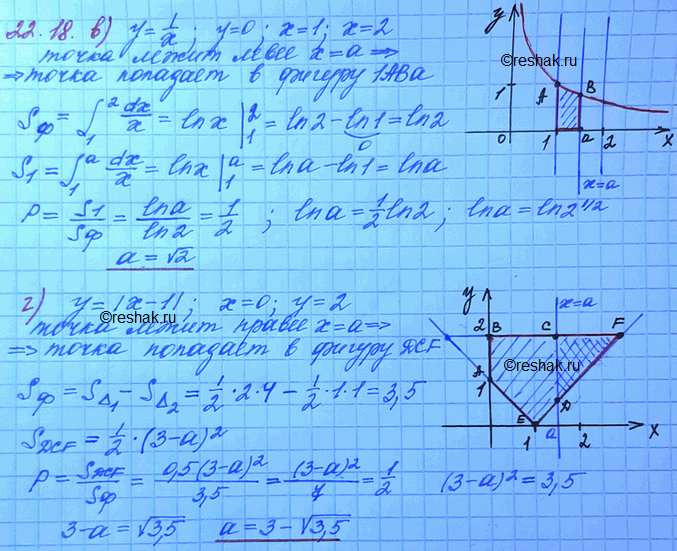 22.18. в) y = 1/x ; y=0; x=1; x=2
точка лежит левее x=a ⇒
⇒ точка попадает в фигуру 1ABa
Sф = ∫₁² dx/x = ln x |₁² = ln2 - ln1 = ln2
0
S₁ = ∫₁ᵃ dx/x = ln x |₁ᵃ = ln a - ln1 = ln a
P = S1/Sф = ln a/ln 2 = 1/2 ; ln a = 1/2 ln2 ; ln a = ln 2^1/2
a = √2
y
©reshak.ru
1 A B
0 1 a 2 x
x=a
г) y = |x-1| ; x=0; y=2
©reshak.ru
точка лежит правее x=a ⇒
⇒ точка попадает в фигуру DCF
Sф = S△₁ - S△₂ = 1/2 · 2 · 4 - 1/2 · 1 · 1 = 3,5
S_DCF = 1/2 · (3-a)²
P = S_DCF/Sф = 0,5(3-a)²/3,5 = (3-a)²/7 = 1/2 (3-a)² = 3,5
3-a = √3,5 a = 3 - √3,5
y x=a
2 B C F
©reshak.ru
A
1 D
E
1 a 2 x